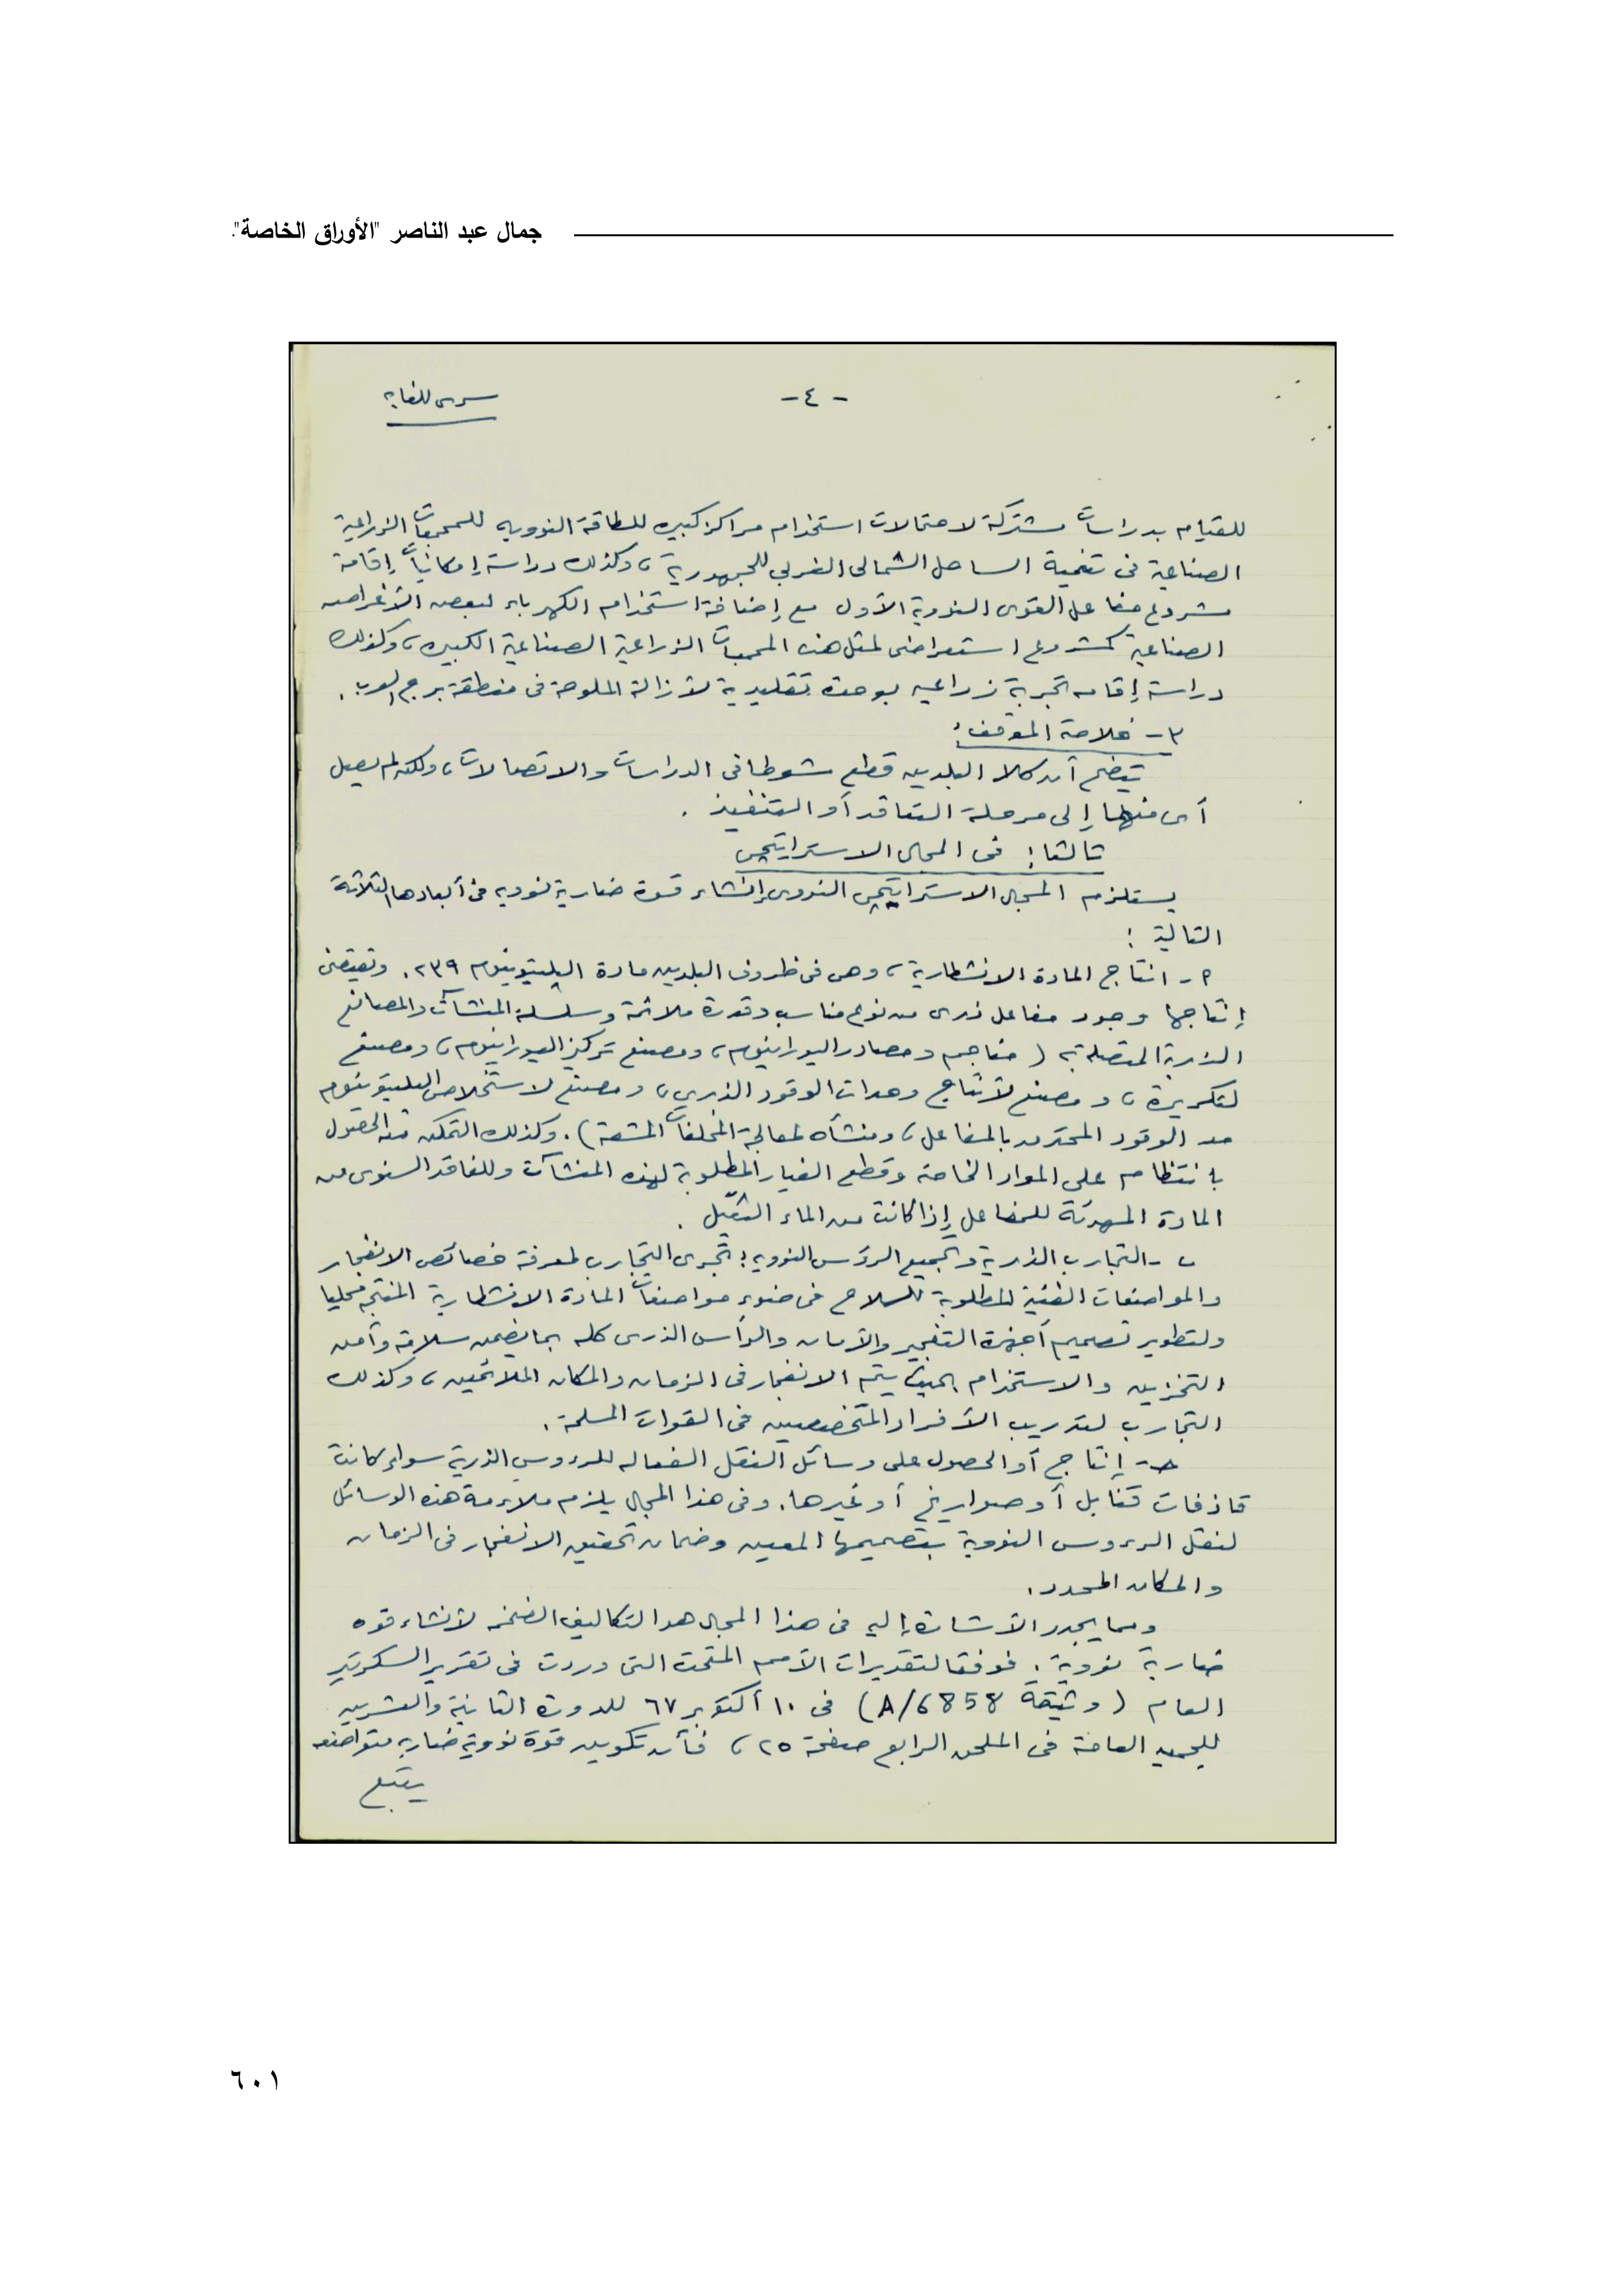 جمال عبد الناصر "الأوراق الخاصة".
سرى للغاية
- ٤ -
للقيام بدراسات مشتركة لاحتمالات استخدام مراكز كبيره للطاقة النوويه للمجمعات الزراعية
الصناعية فى تنمية الساحل الشمالى الغربى للجمهورية ، وكذلك دراسة إمكانيات إقامة
مشروع مفاعل القوى النووية الأول مع إضافة استخدام الكهرباء لبعض الأغراض
الصناعية كمشروع استعراضى لمثل هذه المجمعات الزراعية الصناعية الكبيره ، وكذلك
دراسة إقامه تجربة زراعيه بوحدة تقليدية لأزالة الملوحة فى منطقة برج العرب .
٣ - خلاصة الموقف :
يتضح أن كلا البلدين قطع شوطا فى الدراسات والاتصالات ، ولكن لم يصل
أى منهما إلى مرحلة التعاقد أو التنفيذ .
ثالثا : فى المجال الاستراتيجى
يستلزم المجال الاستراتيجى النووى إنشاء قوة ضاربة نوويه فى أبعادها الثلاثة
التالية :
٢ - انتاج المادة الانشطارية ، وهى فى ظروف البلدين مادة البليتونيوم ٢٣٩ . وتقتضى
إنتاجها وجود مفاعل ذرى من نوع مناسب وقدرة ملائمة وسلسلة المنشآت والمصانع
الذرية المتصلة به ( مناجم ومصادر اليورانيوم ، ومصنع تركيز اليورانيوم ، ومصنع
لتكريره ، ومصنع لأنتاج وحدات الوقود الذرى ، ومصنع لاستخلاص البليتونيوم
من الوقود المحترق بالمفاعل ، ومنشأه لمعالجة المخلفات المشعة ) . وكذلك التمكن من الحصول
بانتظام على المواد الخاصة وقطع الغيار المطلوبة لهذه المنشآت وللفاقد السنوى من
المادة المهدئة للمفاعل إذا كانت من الماء الثقيل .
ب - التجارب الذرية وتجميع الرؤس النوويه : تجرى التجارب لمعرفة خصائص الانفجار
والمواصفات الفنية المطلوبة للسلاح فى ضوء مواصفات المادة الانشطارية المنتجه محليا
ولتطوير تصميم أجهزة التفجير والأمان والرأس الذرى كله بما يضمن سلامة وأمن
التخزين والاستخدام بحيث يتم الانفجار فى الزمان والمكان الملائمين ، وكذلك
التجارب لتدريب الأفراد المتخصصين فى القوات المسلحة .
حـ - إنتاج أو الحصول على وسائل النقل الفعاله للرءوس الذرية سواء كانت
قاذفات قنابل أو صواريخ أو غيرها . وفى هذا المجال يلزم ملاءمة هذه الوسائل
لنقل الرءوس النووية بتصميمها المعين وضمان تحقيق الانفجار فى الزمان
والمكان المحدد .
ومما يجدر الأشارة إليه فى هذا المجال هو التكاليف الضخمه لأنشاء قوه
ضاربة نووية . فوفقا لتقديرات الأمم المتحدة التى وردت فى تقرير السكرتير
العام ( وثيقة A/6858 ) فى ١٠ أكتوبر ٦٧ للدورة الثانية والعشرين
للجمعيه العامة فى الملحق الرابع صفحة ٢٥ ، فأن تكوين قوة نووية ضاربه متواضعه
يتبع
٦٠١